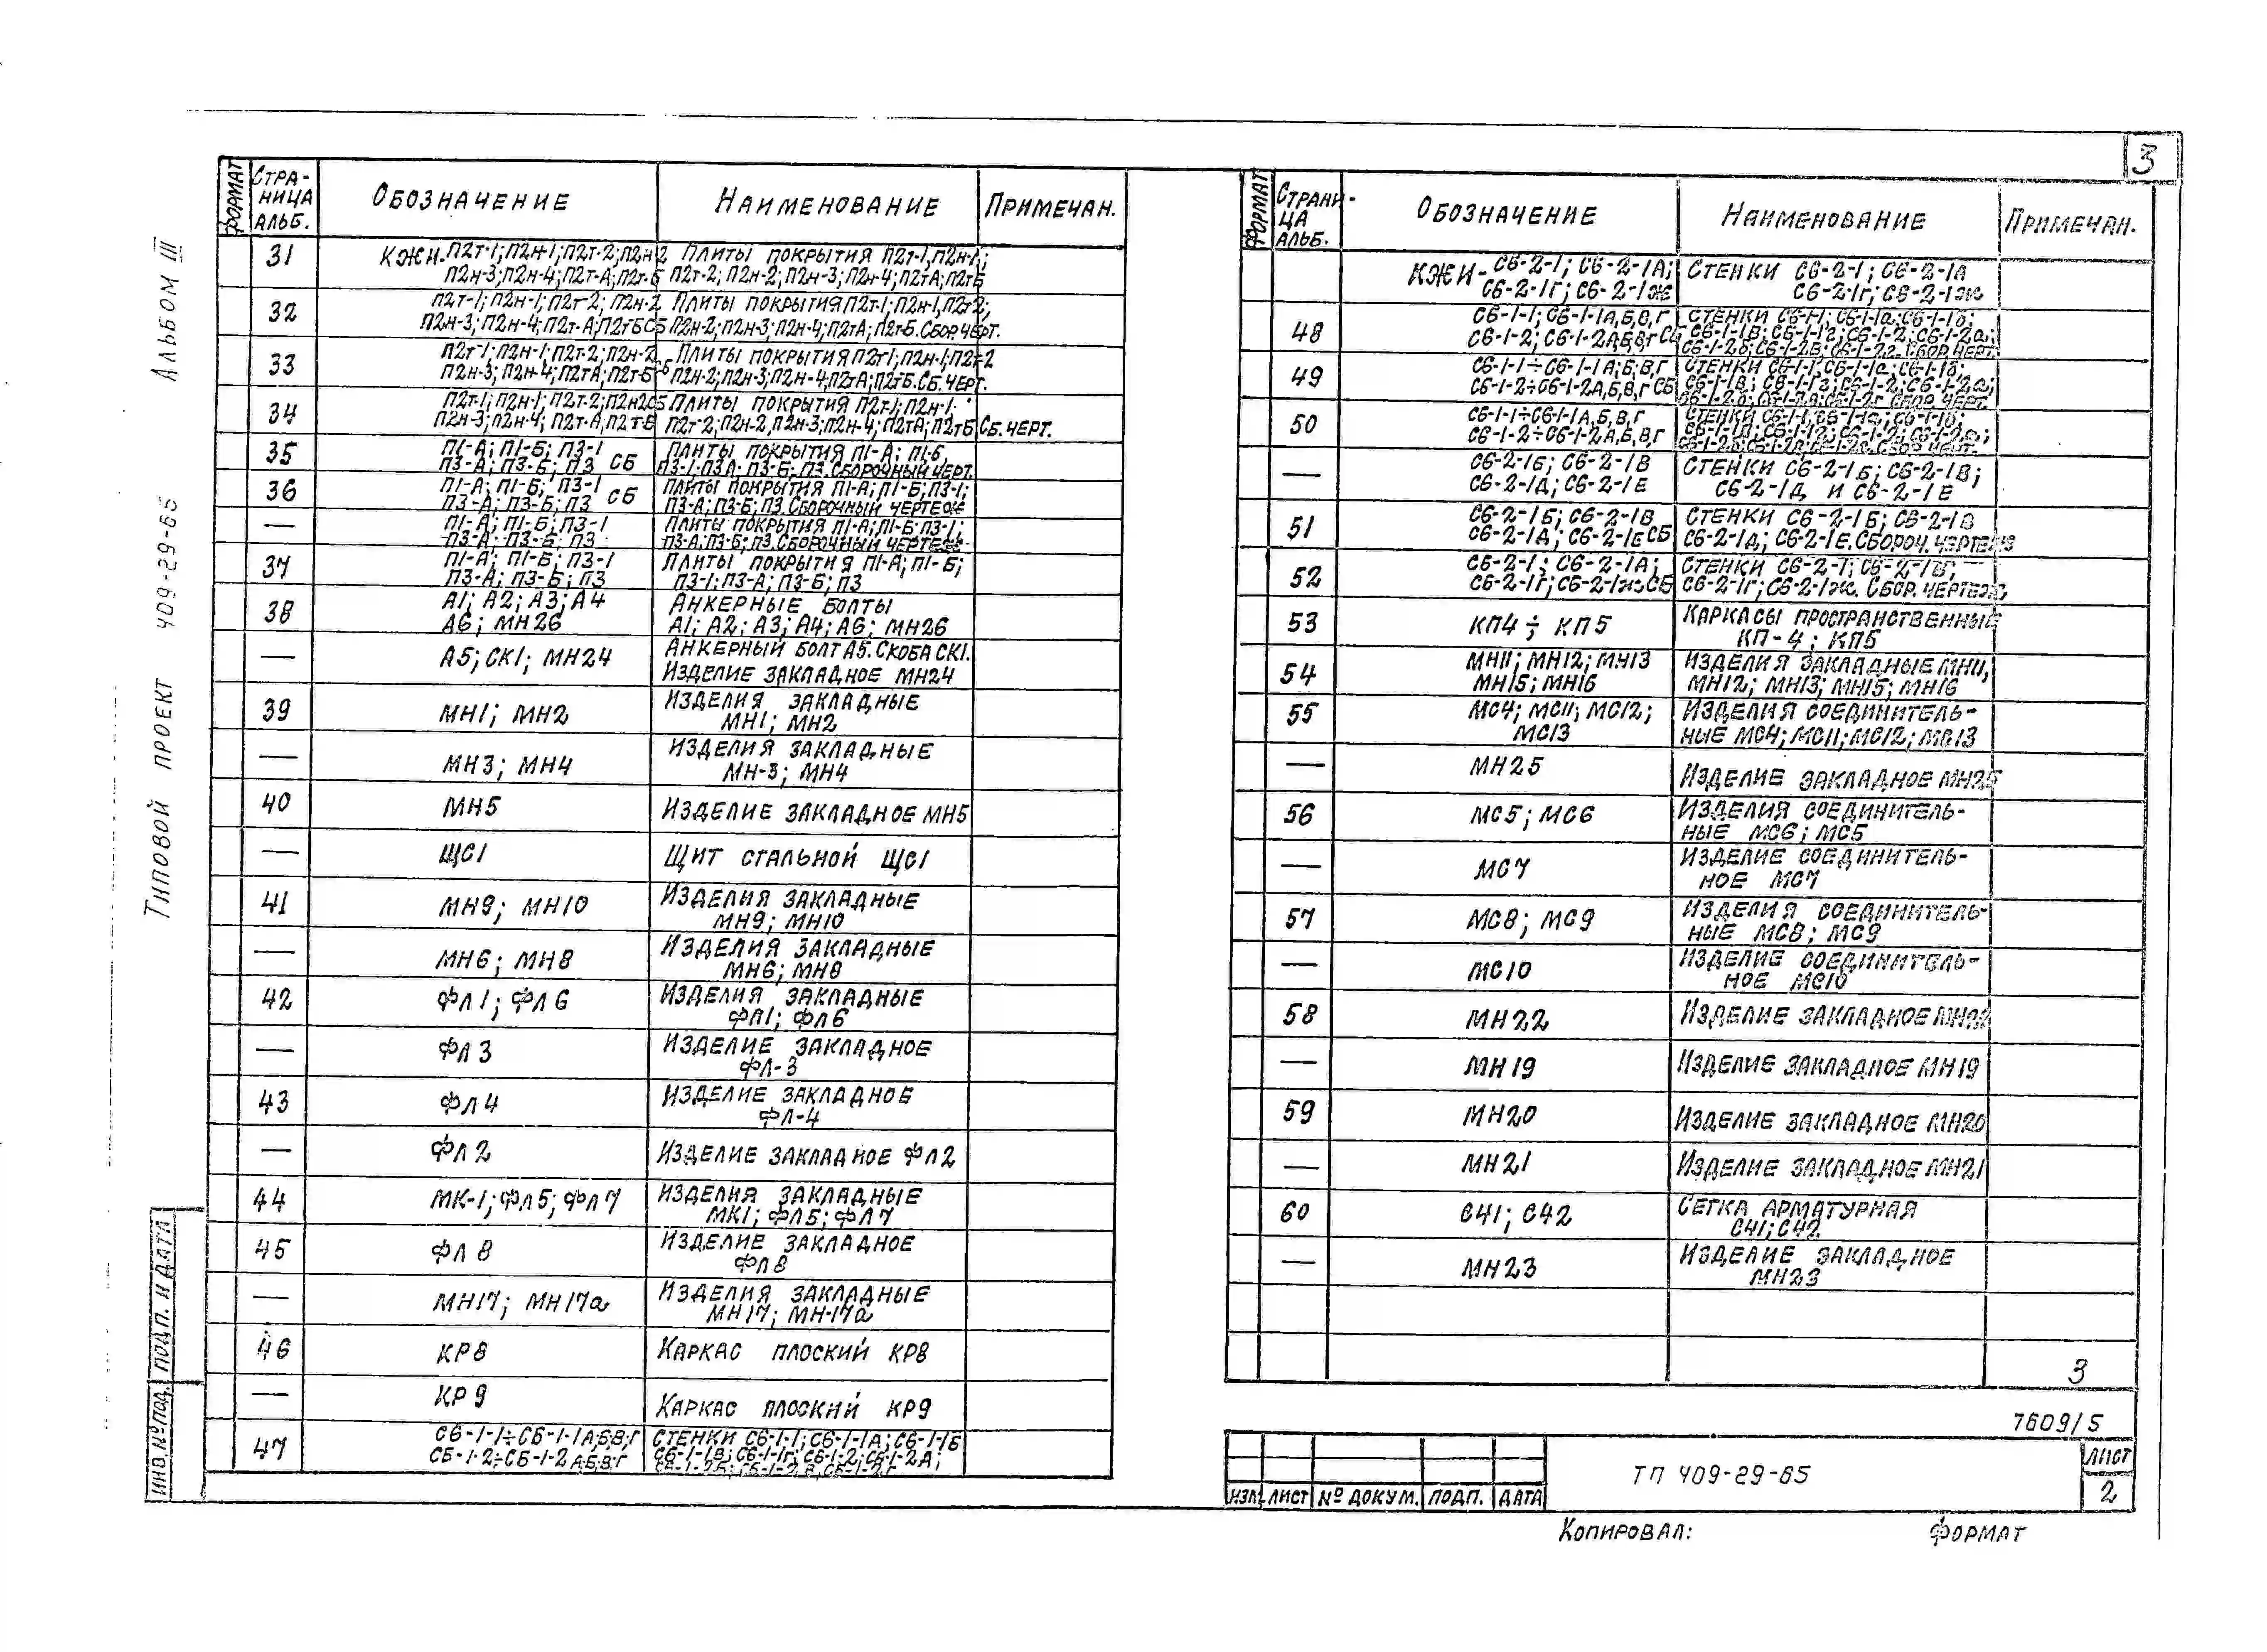 3
Альбом III
Типовой проект 409-29-65
Формат
Страница альб.
Обозначение
Наименование
Примечан.
31
КЖИ-П2т-1; П2н-1; П2т-2; П2н-2
П2н-3; П2н-4; П2т-А; П2т-Б
Плиты покрытия П2т-1, П2н-1;
П2т-2; П2н-2; П2н-3; П2н-4; П2тА; П2тБ
32
П2т-1; П2н-1; П2т-2; П2н-2
П2н-3; П2н-4; П2т-А; П2тБ СБ
Плиты покрытия П2т-1; П2н-1, П2т2;
П2н-2; П2н-3; П2н-4; П2тА; П2т-Б. Сбор. черт.
33
П2т-1; П2н-1; П2т-2; П2н-2
П2н-3; П2н-4; П2тА; П2т-Б СБ
Плиты покрытия П2т1; П2н-1; П2т-2
П2н-2; П2н-3; П2н-4; П2тА; П2тБ. Сб. черт.
34
П2т-1; П2н-1; П2т-2; П2н2 СБ
П2н-3; П2н-4; П2т-А, П2т-Б
Плиты покрытия П2т-1; П2н-1.
П2т-2; П2н-2, П2н-3; П2н-4; П2тА; П2тБ
Сб. черт.
35
П1-А; П1-Б; П3-1
П3-А; П3-Б; П3 СБ
Плиты покрытия П1-А; П1-Б,
П3-1; П3А; П3-Б; П3. Сборочный черт.
36
П1-А; П1-Б; П3-1
П3-А; П3-Б; П3 СБ
Плиты покрытия П1-А; П1-Б; П3-1;
П3-А; П3-Б; П3. Сборочный чертеж
—
П1-А; П1-Б; П3-1
П3-А; П3-Б; П3
Плиты покрытия П1-А; П1-Б; П3-1;
П3-А; П3-Б; П3. Сборочный чертеж
37
П1-А; П1-Б; П3-1
П3-А; П3-Б; П3
Плиты покрытия П1-А; П1-Б;
П3-1; П3-А; П3-Б; П3
38
А1; А2; А3; А4
А6; МН26
Анкерные болты
А1; А2; А3; А4; А6; МН26
—
А5; СК1; МН24
Анкерный болт А5. Скоба СК1.
Изделие закладное МН24
39
МН1; МН2
Изделия закладные
МН1; МН2
—
МН3; МН4
Изделия закладные
МН-3; МН4
40
МН5
Изделие закладное МН5
—
ЩС1
Щит стальной ЩС1
41
МН9; МН10
Изделия закладные
МН9; МН10
—
МН6; МН8
Изделия закладные
МН6; МН8
42
ФЛ1; ФЛ6
Изделия закладные
ФЛ1; ФЛ6
—
ФЛ3
Изделие закладное
ФЛ-3
43
ФЛ4
Изделие закладное
ФЛ-4
—
ФЛ2
Изделие закладное ФЛ2
44
МК-1; ФЛ5; ФЛ7
Изделия закладные
МК1; ФЛ5; ФЛ7
45
ФЛ8
Изделие закладное
ФЛ8
—
МН17; МН17а
Изделия закладные
МН17; МН-17а
46
КР8
Каркас плоский КР8
—
КР9
Каркас плоский КР9
47
С6-1-1÷С6-1-1А,Б,В,Г
С6-1-2÷С6-1-2А,Б,В,Г
Стенки С6-1-1; С6-1-1А; С6-1-1Б
С6-1-1В; С6-1-1Г; С6-1-2; С6-1-2А;
С6-1-2Б; С6-1-2В, С6-1-2Г
Формат
Страница альб.
Обозначение
Наименование
Примечан.
КЖИ-С6-2-1; С6-2-1А;
С6-2-1Г; С6-2-1Ж
Стенки С6-2-1; С6-2-1А
С6-2-1г; С6-2-1ж
48
С6-1-1; С6-1-1А,Б,В,Г
С6-1-2; С6-1-2А,Б,В,Г СБ
Стенки С6-1-1; С6-1-1а; С6-1-1б;
С6-1-1В; С6-1-1г; С6-1-2; С6-1-2а;
С6-1-2б; С6-1-2в; С6-1-2г. Сбор. черт.
49
С6-1-1÷С6-1-1А,Б,В,Г
С6-1-2÷С6-1-2А,Б,В,Г СБ
Стенки С6-1-1; С6-1-1а; С6-1-1б;
С6-1-1В; С6-1-1г; С6-1-2; С6-1-2а;
50
С6-1-1÷С6-1-1А,Б,В,Г
С6-1-2÷С6-1-2А,Б,В,Г
Стенки С6-1-1; С6-1-1а; С6-1-1б;
—
С6-2-1Б; С6-2-1В
С6-2-1Д; С6-2-1Е
Стенки С6-2-1Б; С6-2-1В;
С6-2-1Д и С6-2-1Е
51
С6-2-1Б; С6-2-1В
С6-2-1Д; С6-2-1Е СБ
Стенки С6-2-1Б; С6-2-1В
С6-2-1Д; С6-2-1Е. Сбороч. чертеж
52
С6-2-1; С6-2-1А;
С6-2-1Г; С6-2-1ж СБ
Стенки С6-2-1;
С6-2-1Г; С6-2-1ж. Сбор. чертеж
53
КП4 ÷ КП5
Каркасы пространственные
КП-4; КП5
54
МН11; МН12; МН13
МН15; МН16
Изделия закладные МН11,
МН12; МН13; МН15; МН16
55
МС4; МС11; МС12;
МС13
Изделия соединитель-
ные МС4; МС11; МС12; МС13
—
МН25
Изделие закладное МН25
56
МС5; МС6
Изделия соединитель-
ные МС6; МС5
—
МС7
Изделие соединитель-
ное МС7
57
МС8; МС9
Изделия соединитель-
ные МС8; МС9
—
МС10
Изделие соединитель-
ное МС10
58
МН22
Изделие закладное МН22
—
МН19
Изделие закладное МН19
59
МН20
Изделие закладное МН20
—
МН21
Изделие закладное МН21
60
С41; С42
Сетка арматурная
С41; С42
—
МН23
Изделие закладное
МН23
3
7609/5
ТП 409-29-65
Лист
2
Изм. Лист № докум. Подп. Дата
Инв. № под. Подп. и дата
Копировал: Формат